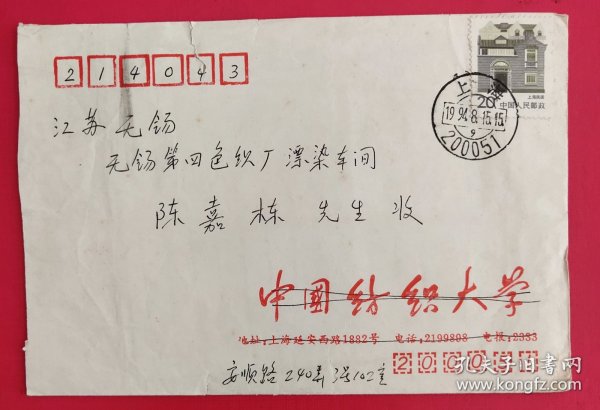 214043
上海
20
上海民居
中国人民邮政
1994.8.15.15
9
200051
江苏 无锡
无锡第四色织厂漂染车间
陈嘉栋 先生 收
中国纺织大学
地址:上海延安西路1882号 电话:2199898 电报:2333
安顺路240弄3号102室
孔夫子旧书网
www.kongfz.com